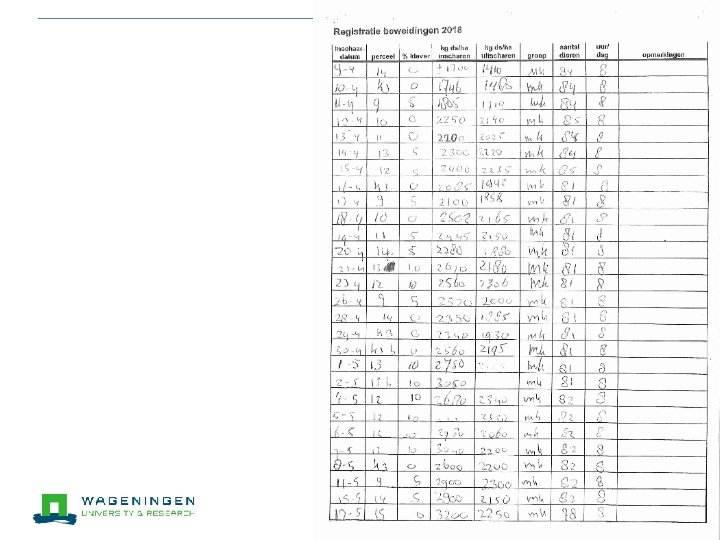 Registratie beweidingen 2018
inschaar-datum perceel % klaver kg ds/ha inscharen kg ds/ha uitscharen groep aantal dieren uur/dag opmerkingen
9-4 14 0 ±1700 1410 mk 84 8
10-4 k3 0 1746 1460 mk 84 8
11-4 9 5 1805 mk 84 8
12-4 10 0 2250 2140 mk 85 8
13-4 11 0 2200 2025 mk 84 8
14-4 13 5 2300 2220 mk 84 8
15-4 12 5 2400 2235 mk 85 8
k3 0 2085 1948 mk 81 8
17-4 9 5 2100 1958 mk 81 8
18-4 10 0 2502 2165 mk 81 8
19-4 11 5 2445 2150 mk 81 8
20-4 14 5 2280 1980 mk 81 8
21-4 13 10 2670 2180 mk 81 8
23-4 12 10 2560 2306 mk 81 8
26-4 9 5 2520 2000 mk 81 8
28-4 14 0 2350 1885 mk 81 8
29-4 k3 0 2340 1930 mk 81 8
30-4 k3 b 0 2560 2195 mk 81 8
1-5 13 10 2750 mk 81 8
2-5 13 b 10 3050 mk 81 8
4-5 12 10 2690 2340 mk 82 8
5-5 12 10 mk 82 8
6-5 2060 mk 82 8
10 3040 2200 mk 82 8
8-5 k3 0 2600 2200 mk 82 8
11-5 9 5 2900 2300 mk 82 8
15-5 14 5 2900 2150 mk 82 8
17-5 15 0 3200 2250 mk 98 8
WAGENINGEN
UNIVERSITY & RESEARCH